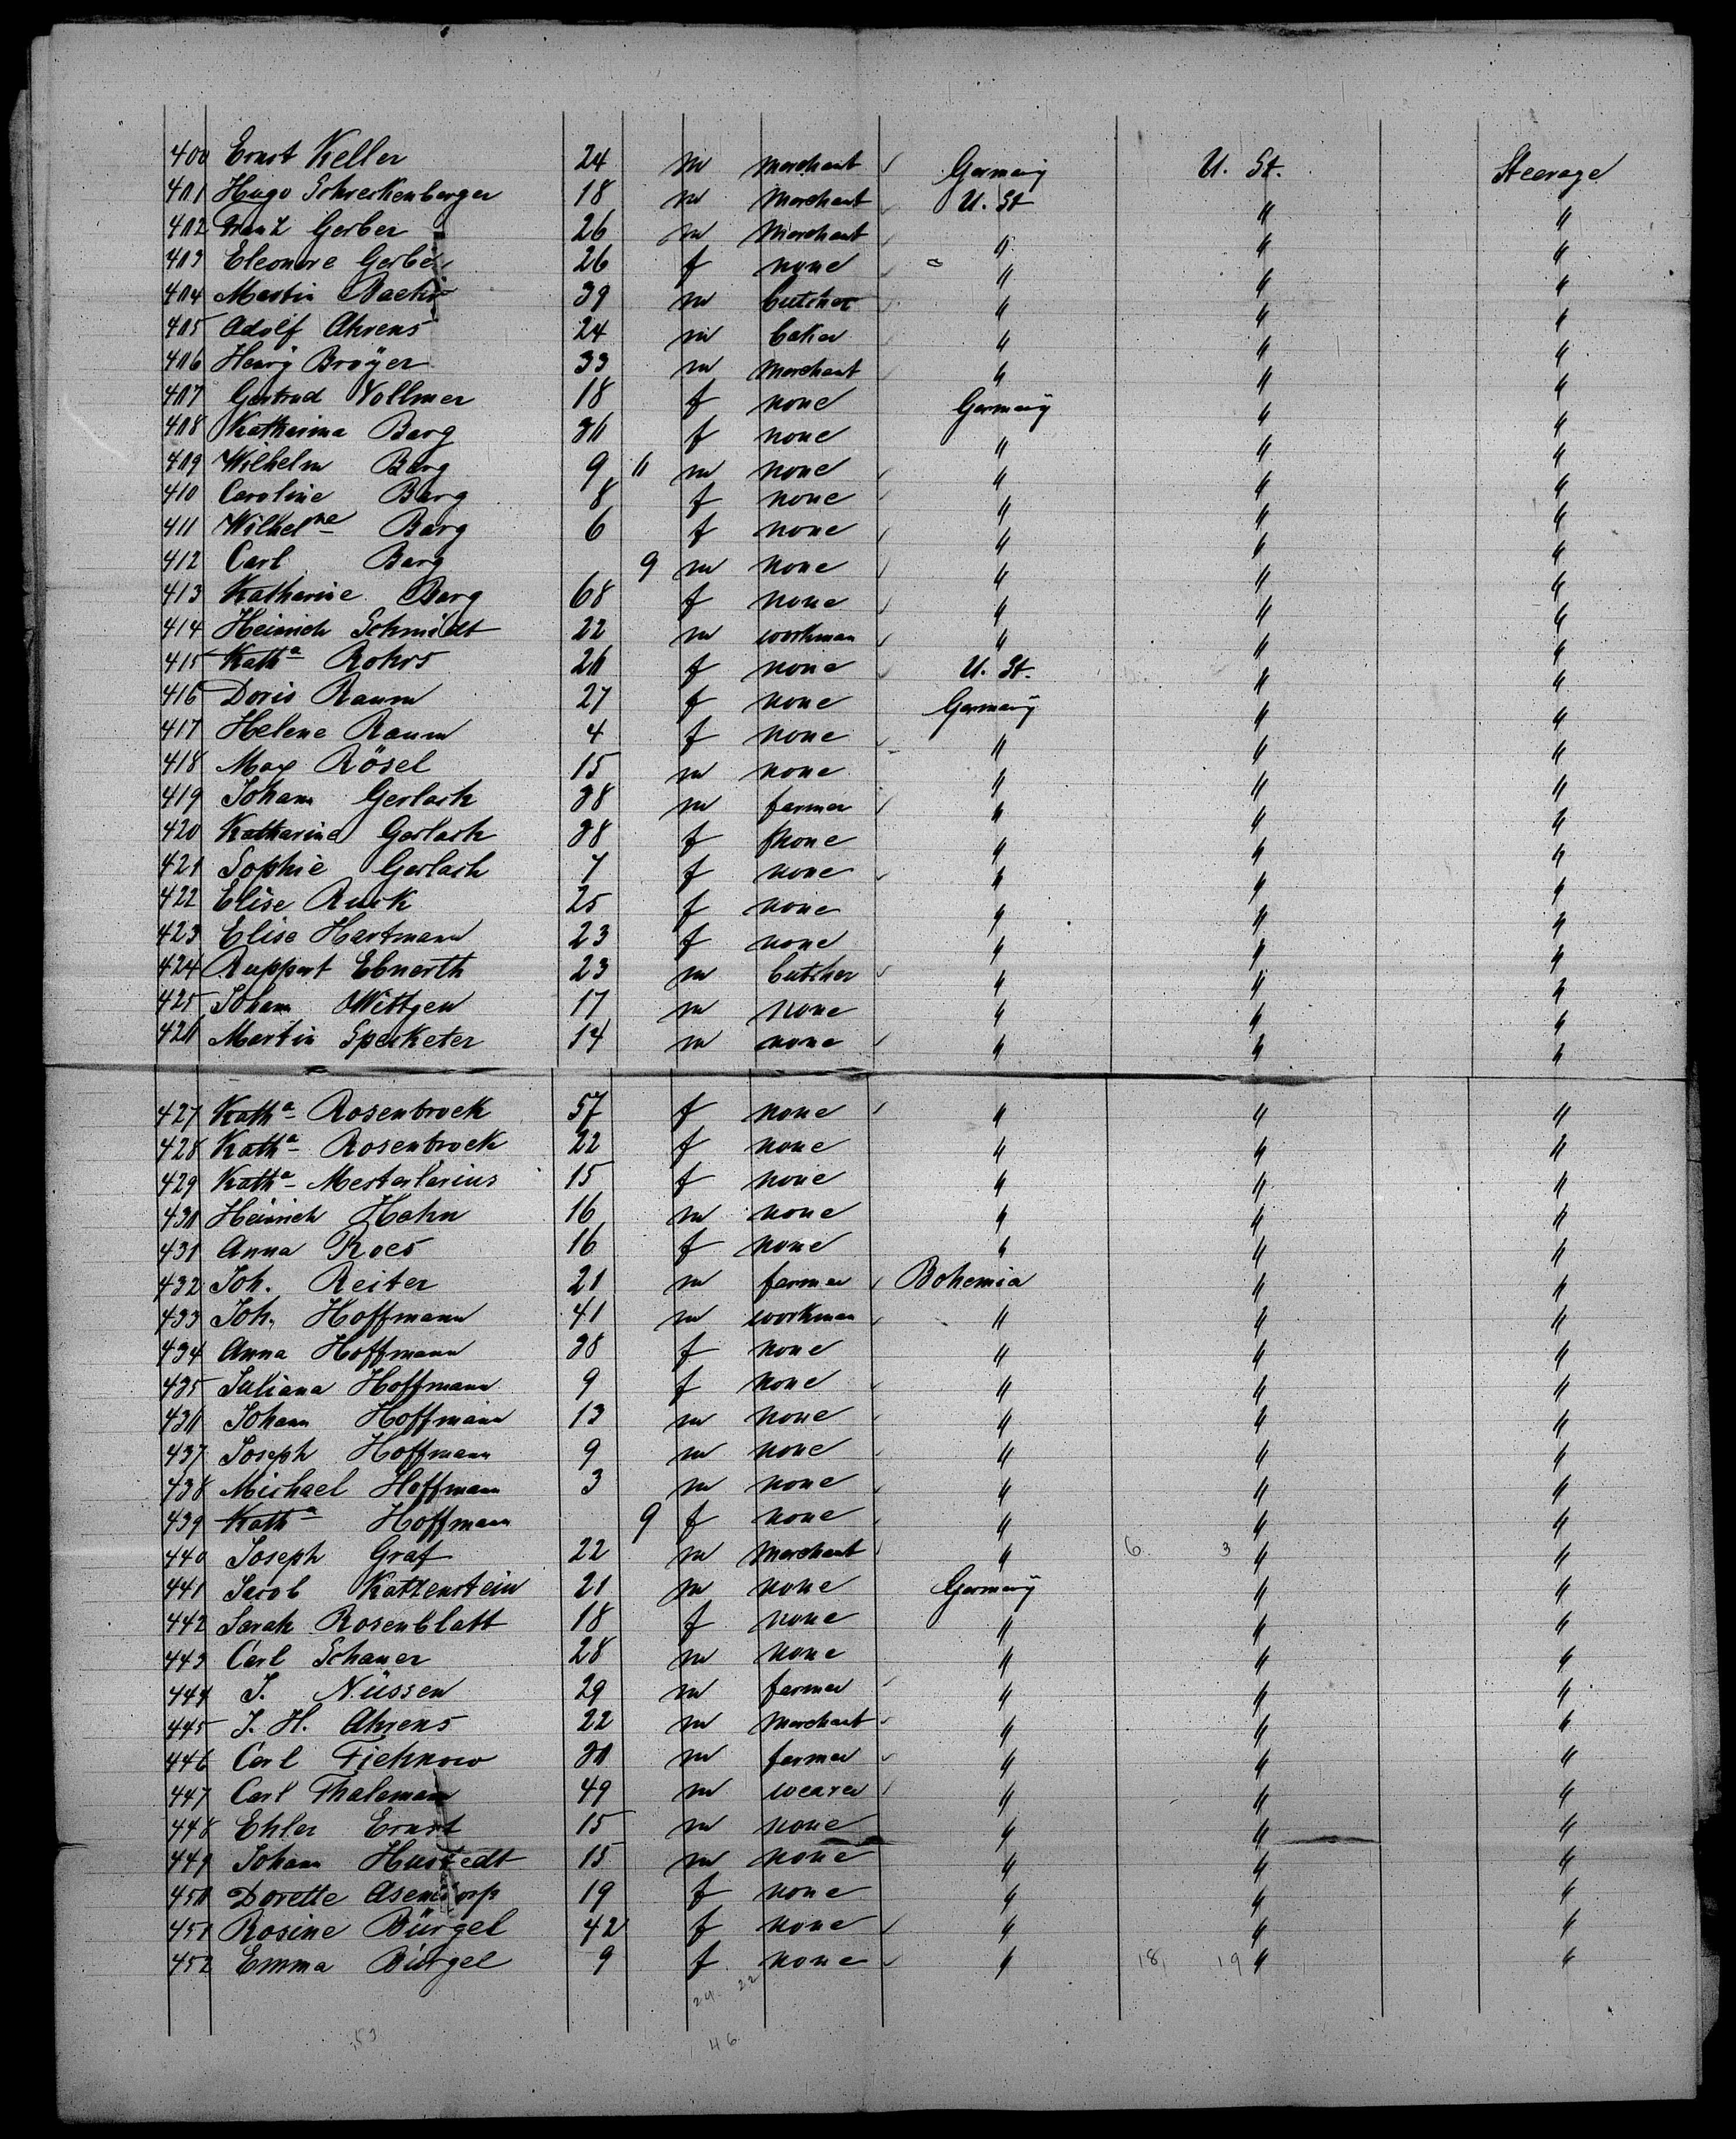 400 Ernst Keller 24 m merchant Germany U. St. Steerage
401 Hugo Schreckenberger 18 m merchant U. St " "
402 Franz Gerber 26 m merchant " " "
403 Eleonore Gerber 26 f none " " "
404 Martin 39 m butcher " " "
405 Adolf Ahrens 24 m baker " " "
406 Henry Bröyer 33 m merchant " " "
407 Gertrud Vollmer 18 f none Germany " "
408 Katharina Barg 30 f none " " "
409 Wilhelm Barg 9 11 m none " " "
410 Caroline Barg 8 f none " " "
411 Wilhelne Barg 6 f none " " "
412 Carl Barg 9 m none " " "
413 Katharine Barg 68 f none " " "
414 Heinrich Schmidt 22 m workman " " "
415 Katha Rohrs 20 f none U. St. " "
416 Doris Raum 27 f none Germany " "
417 Helene Raum 4 f none " " "
418 Max Rösel 15 m none " " "
419 Johann Gerlach 38 m farmer " " "
420 Katharine Gerlach 38 f none " " "
421 Sophie Gerlach 7 f none " " "
422 Elise Ruck 25 f none " " "
423 Elise Hartmann 23 f none " " "
424 Ruppert Ebnerth 23 m butcher " " "
425 Johann Wittgen 17 m none " " "
426 Martin Specketer 14 m none " " "
427 Katha Rosenbrock 57 f none " " "
428 Katha Rosenbrock 22 f none " " "
429 Katha Mestarlarius 15 f none " " "
430 Heinrich Hahn 16 m none " " "
431 Anna Roes 16 f none " " "
432 Joh. Reiter 21 m farmer Bohemia " "
433 Joh. Hoffmann 41 m workman " " "
434 Anna Hoffmann 38 f none " " "
435 Juliana Hoffmann 9 f none " " "
436 Johann Hoffmann 13 m none " " "
437 Joseph Hoffmann 9 m none " " "
438 Michael Hoffmann 3 m none " " "
439 Katha Hoffmann 9 f none " " "
440 Joseph Graf 22 m merchant " 6 3 " "
441 Jacob Kattenstein 21 m none Germany " "
442 Sarah Rosenblatt 18 f none " " "
443 Carl Schauer 28 m none " " "
444 J. Nüssen 29 m farmer " " "
445 J. H. Ahrens 22 m merchant " " "
446 Carl Fichnow 30 m farmer " " "
447 Carl Thalemann 49 m weaver " " "
448 Ehler Ernst 15 m none " " "
449 Johann Hustedt 15 m none " " "
450 Dorette Asendorp 19 f none " " "
451 Rosine Bürgel 42 f none " " "
452 Emma Bürgel 9 f none " 18 19 " "
24 22
53 46